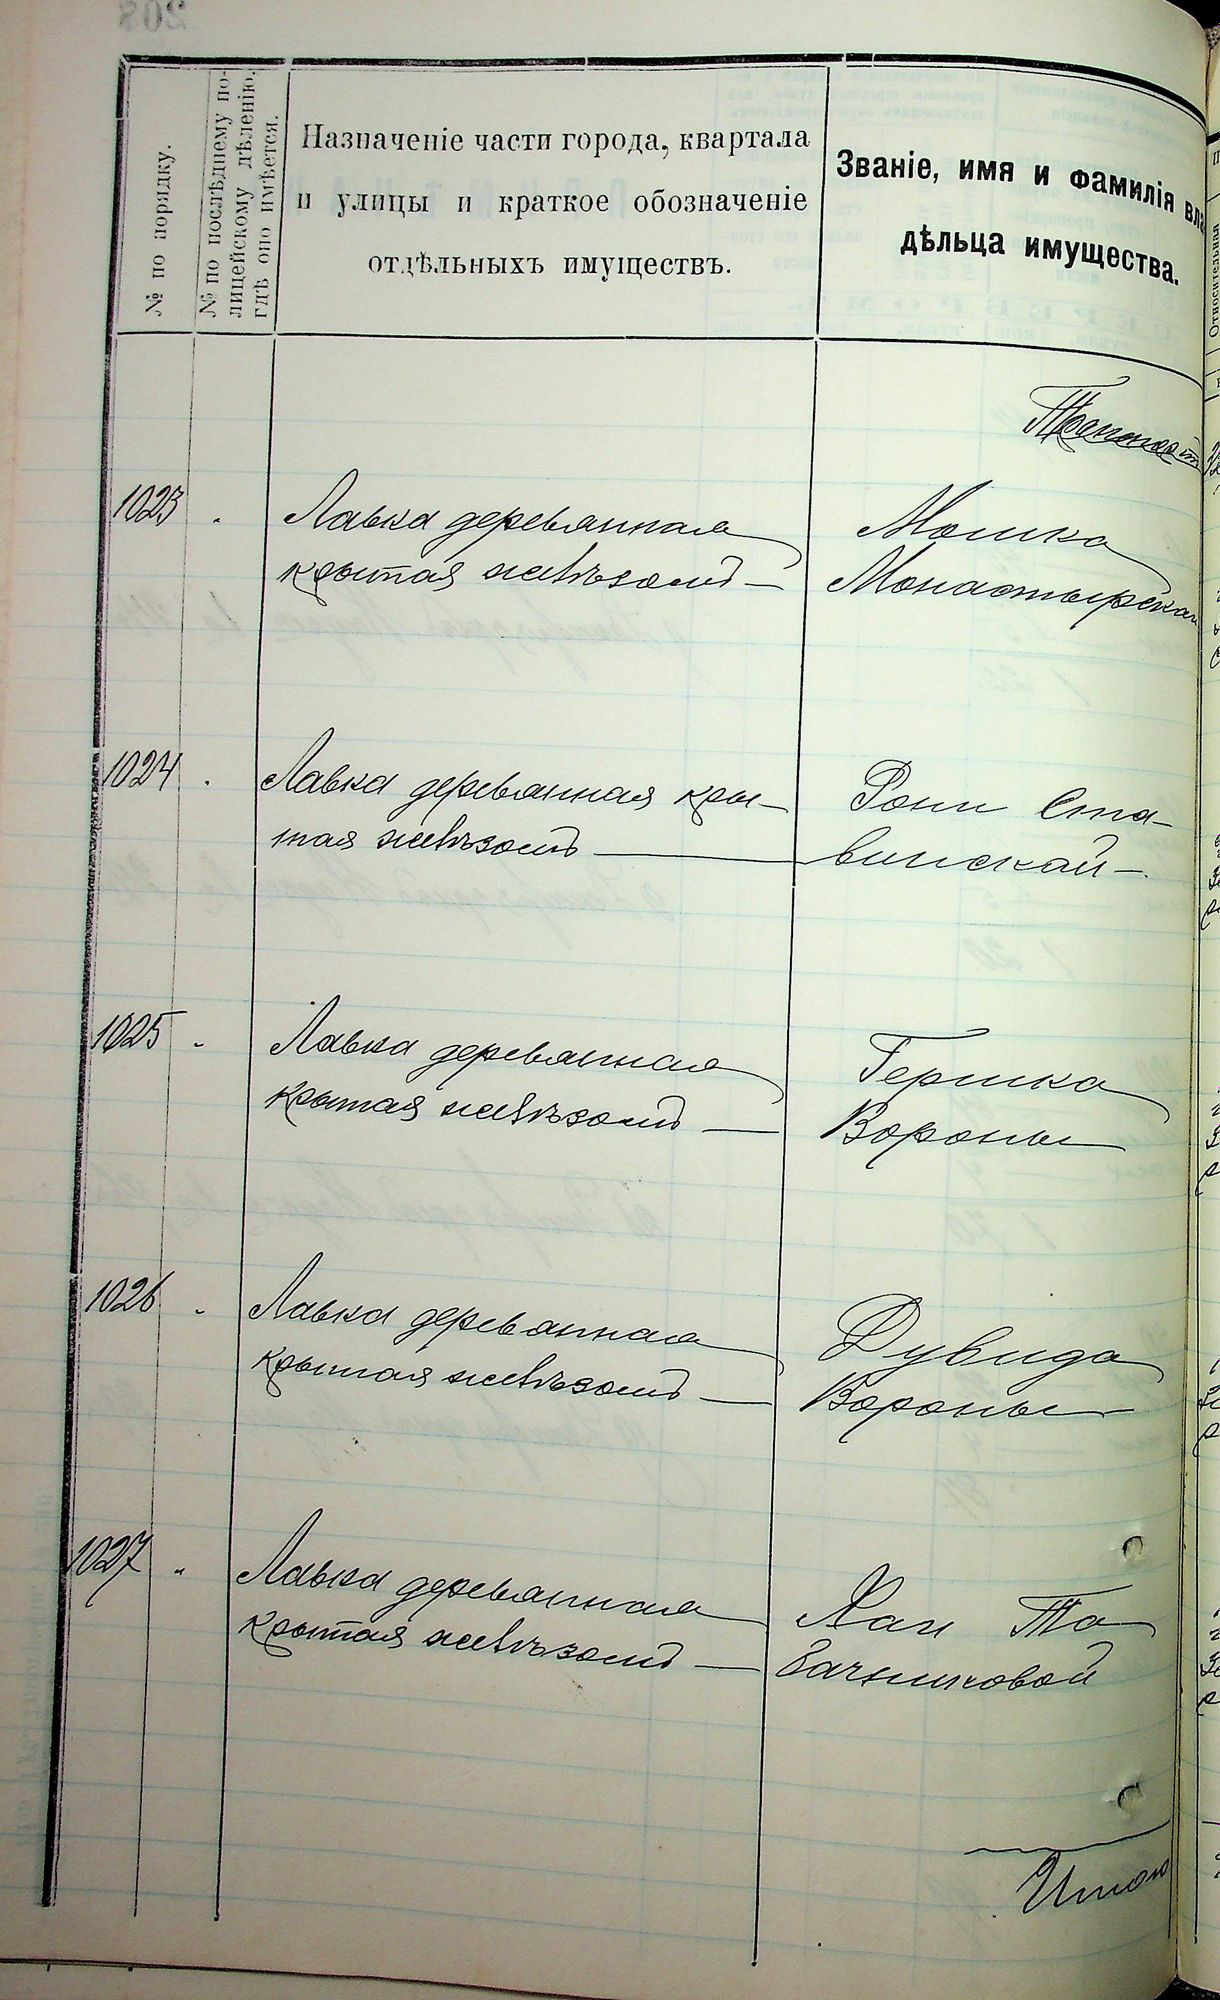 208
№ по порядку.
№ по послѣднему по-
лицейскому дѣленію.
гдѣ оно имѣется.
Назначеніе части города, квартала
и улицы и краткое обозначеніе
отдѣльныхъ имуществъ.
Званіе, имя и фамилія вла
дѣльца имущества.
1023
Лавка деревянная
крытая желѣзомъ —
Мошка
Монастырскаго
1024
Лавка деревянная кры-
тая желѣзомъ —
Рони Ста-
винскай —
1025
Лавка деревянная
крытая желѣзомъ —
Гершка
Вороны
1026
Лавка деревянная
крытая желѣзомъ —
Дувида
Вороны
1027
Лавка деревянная
крытая желѣзомъ —
Хаи Та
бачниковой
Итого